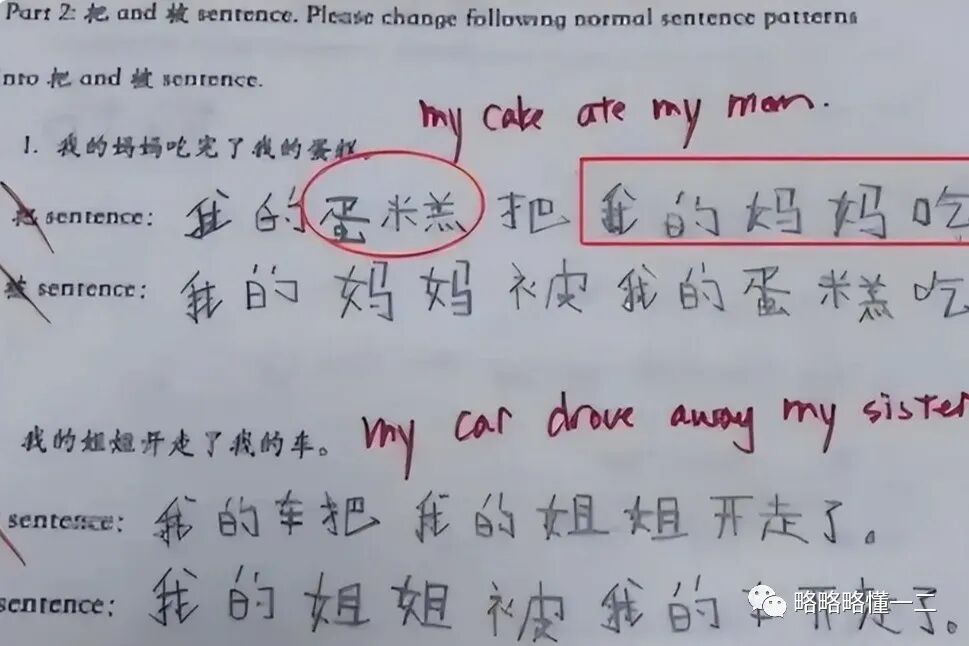 Part 2: 把 and 被 sentence. Please change following normal sentence patterns
into 把 and 被 sentence.
my cake ate my mom.
1. 我的妈妈吃完了我的蛋糕。
把 sentence: 我的蛋糕把我的妈妈吃
被 sentence: 我的妈妈被我的蛋糕吃
my car drove away my sister
我的姐姐开走了我的车。
sentence: 我的车把我的姐姐开走了。
sentence: 我的姐姐被我的车开走了。
略略略懂一二